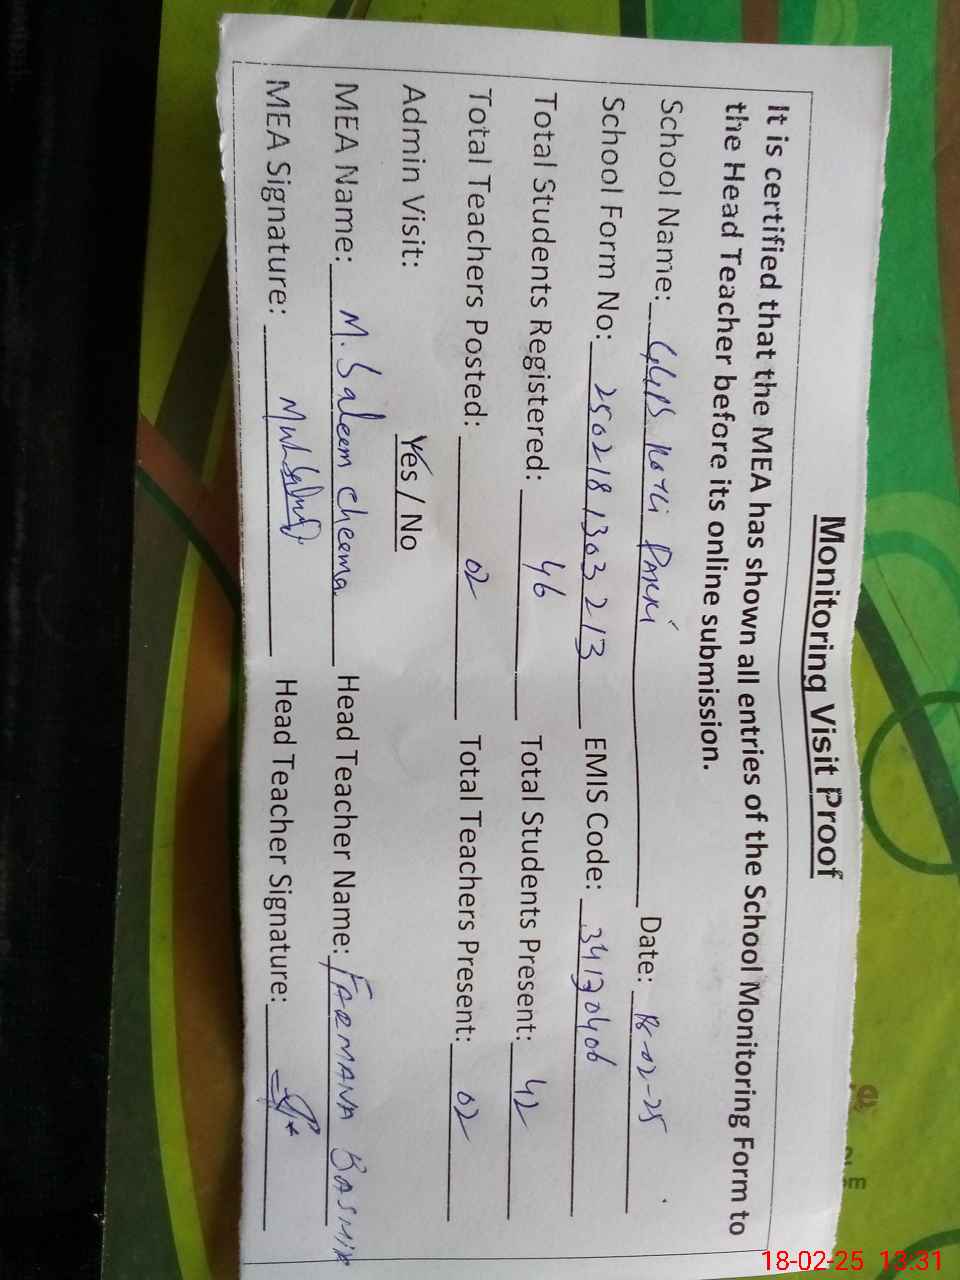 Monitoring Visit Proof
It is certified that the MEA has shown all entries of the School Monitoring Form to
the Head Teacher before its online submission.
School Name: GGPS Kotli Pakki Date: 18-02-25
School Form No: 2502181303213 EMIS Code: 34120406
Total Students Registered: 46 Total Students Present: 42
Total Teachers Posted: 02 Total Teachers Present: 02
Admin Visit: Yes / No
MEA Name: M. Saleem Cheema Head Teacher Name: FARMANA
MEA Signature: Head Teacher Signature:
18-02-25 13:31